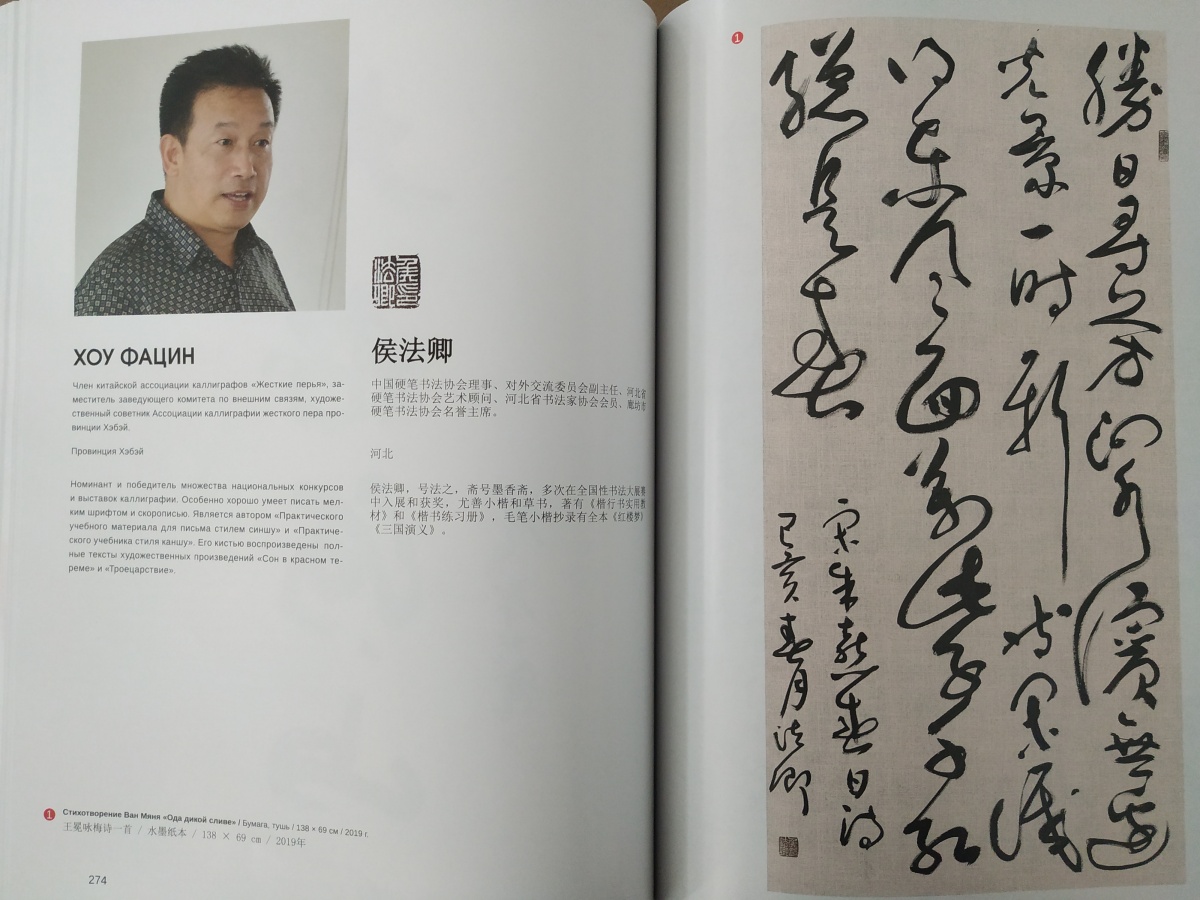 ХОУ ФАЦИН
Член китайской ассоциации каллиграфов «Жесткие перья», за-
меститель заведующего комитета по внешним связям, художе-
ственный советник Ассоциации каллиграфии жесткого пера про-
винции Хэбэй.
Провинция Хэбэй
Номинант и победитель множества национальных конкурсов
и выставок каллиграфии. Особенно хорошо умеет писать мел-
ким шрифтом и скорописью. Является автором «Практического
учебного материала для письма стилем синшу» и «Практиче-
ского учебника стиля каншу». Его кистью воспроизведены пол-
ные тексты художественных произведений «Сон в красном те-
реме» и «Троецарствие».
侯法卿
中国硬笔书法协会理事、对外交流委员会副主任、河北省
硬笔书法协会艺术顾问、河北省书法家协会会员、廊坊市
硬笔书法协会名誉主席。
河北
侯法卿，号法之，斋号墨香斋，多次在全国性书法大展赛
中入展和获奖，尤善小楷和草书，著有《楷行书实用教
材》和《楷书练习册》，毛笔小楷抄录有全本《红楼梦》
《三国演义》。
1
Стихотворение Ван Мяня «Ода дикой сливе» / Бумага, тушь / 138 × 69 см / 2019 г.
王冕咏梅诗一首 / 水墨纸本 / 138 × 69 cm / 2019年
274
1
勝日尋芳泗水濱無邊
光景一時新等閑識
得東風面萬紫千紅
總是春
宋朱熹春日詩
己亥春月法卿